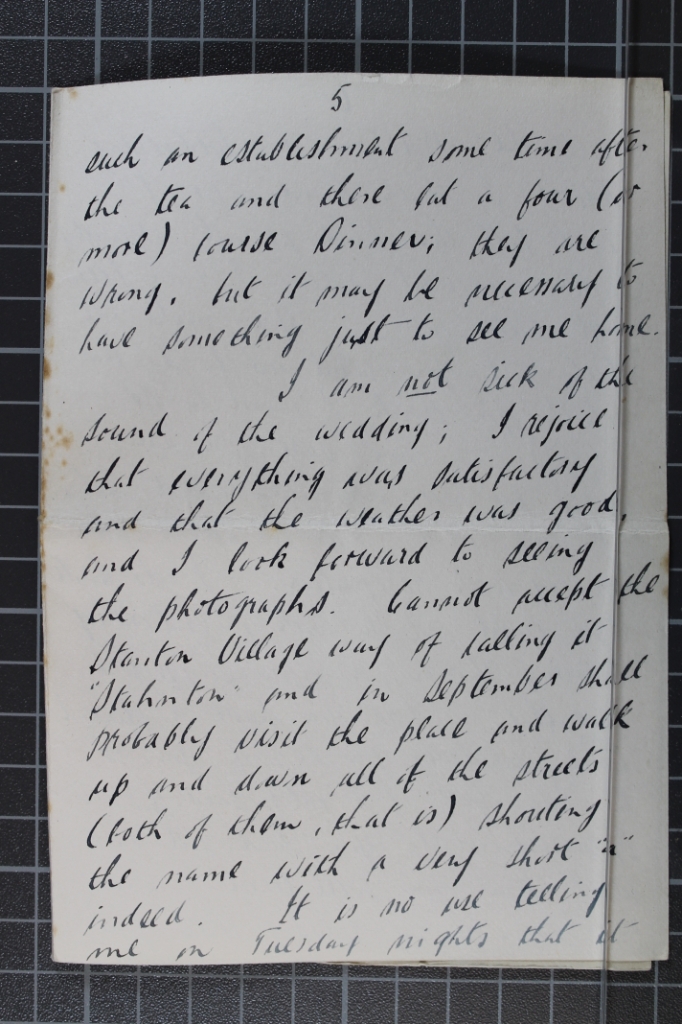 5
such an establishment some time after
the tea and there eat a four (or
more) course Dinner; they are
wrong, but it may be necessary to
have something just to see me home.
I am not sick of the
sound of the wedding; I rejoice
that everything was satisfactory
and that the weather was good,
and I look forward to seeing
the photographs. Cannot accept the
Stanton Village way of calling it
"Stahnton" and in September shall
probably visit the place and walk
up and down all of the streets
(both of them, that is) shouting
the name with a very short "a"
indeed. It is no use telling
me on Tuesday nights that it